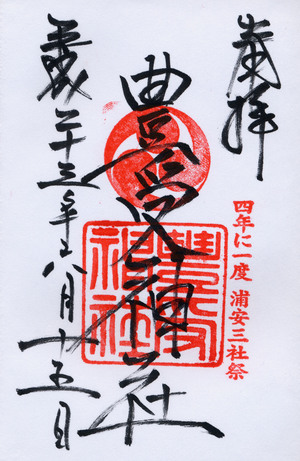 奉拝
四年に一度 浦安三社祭
豊受神社
豊受
神社
平成二十三年八月十五日